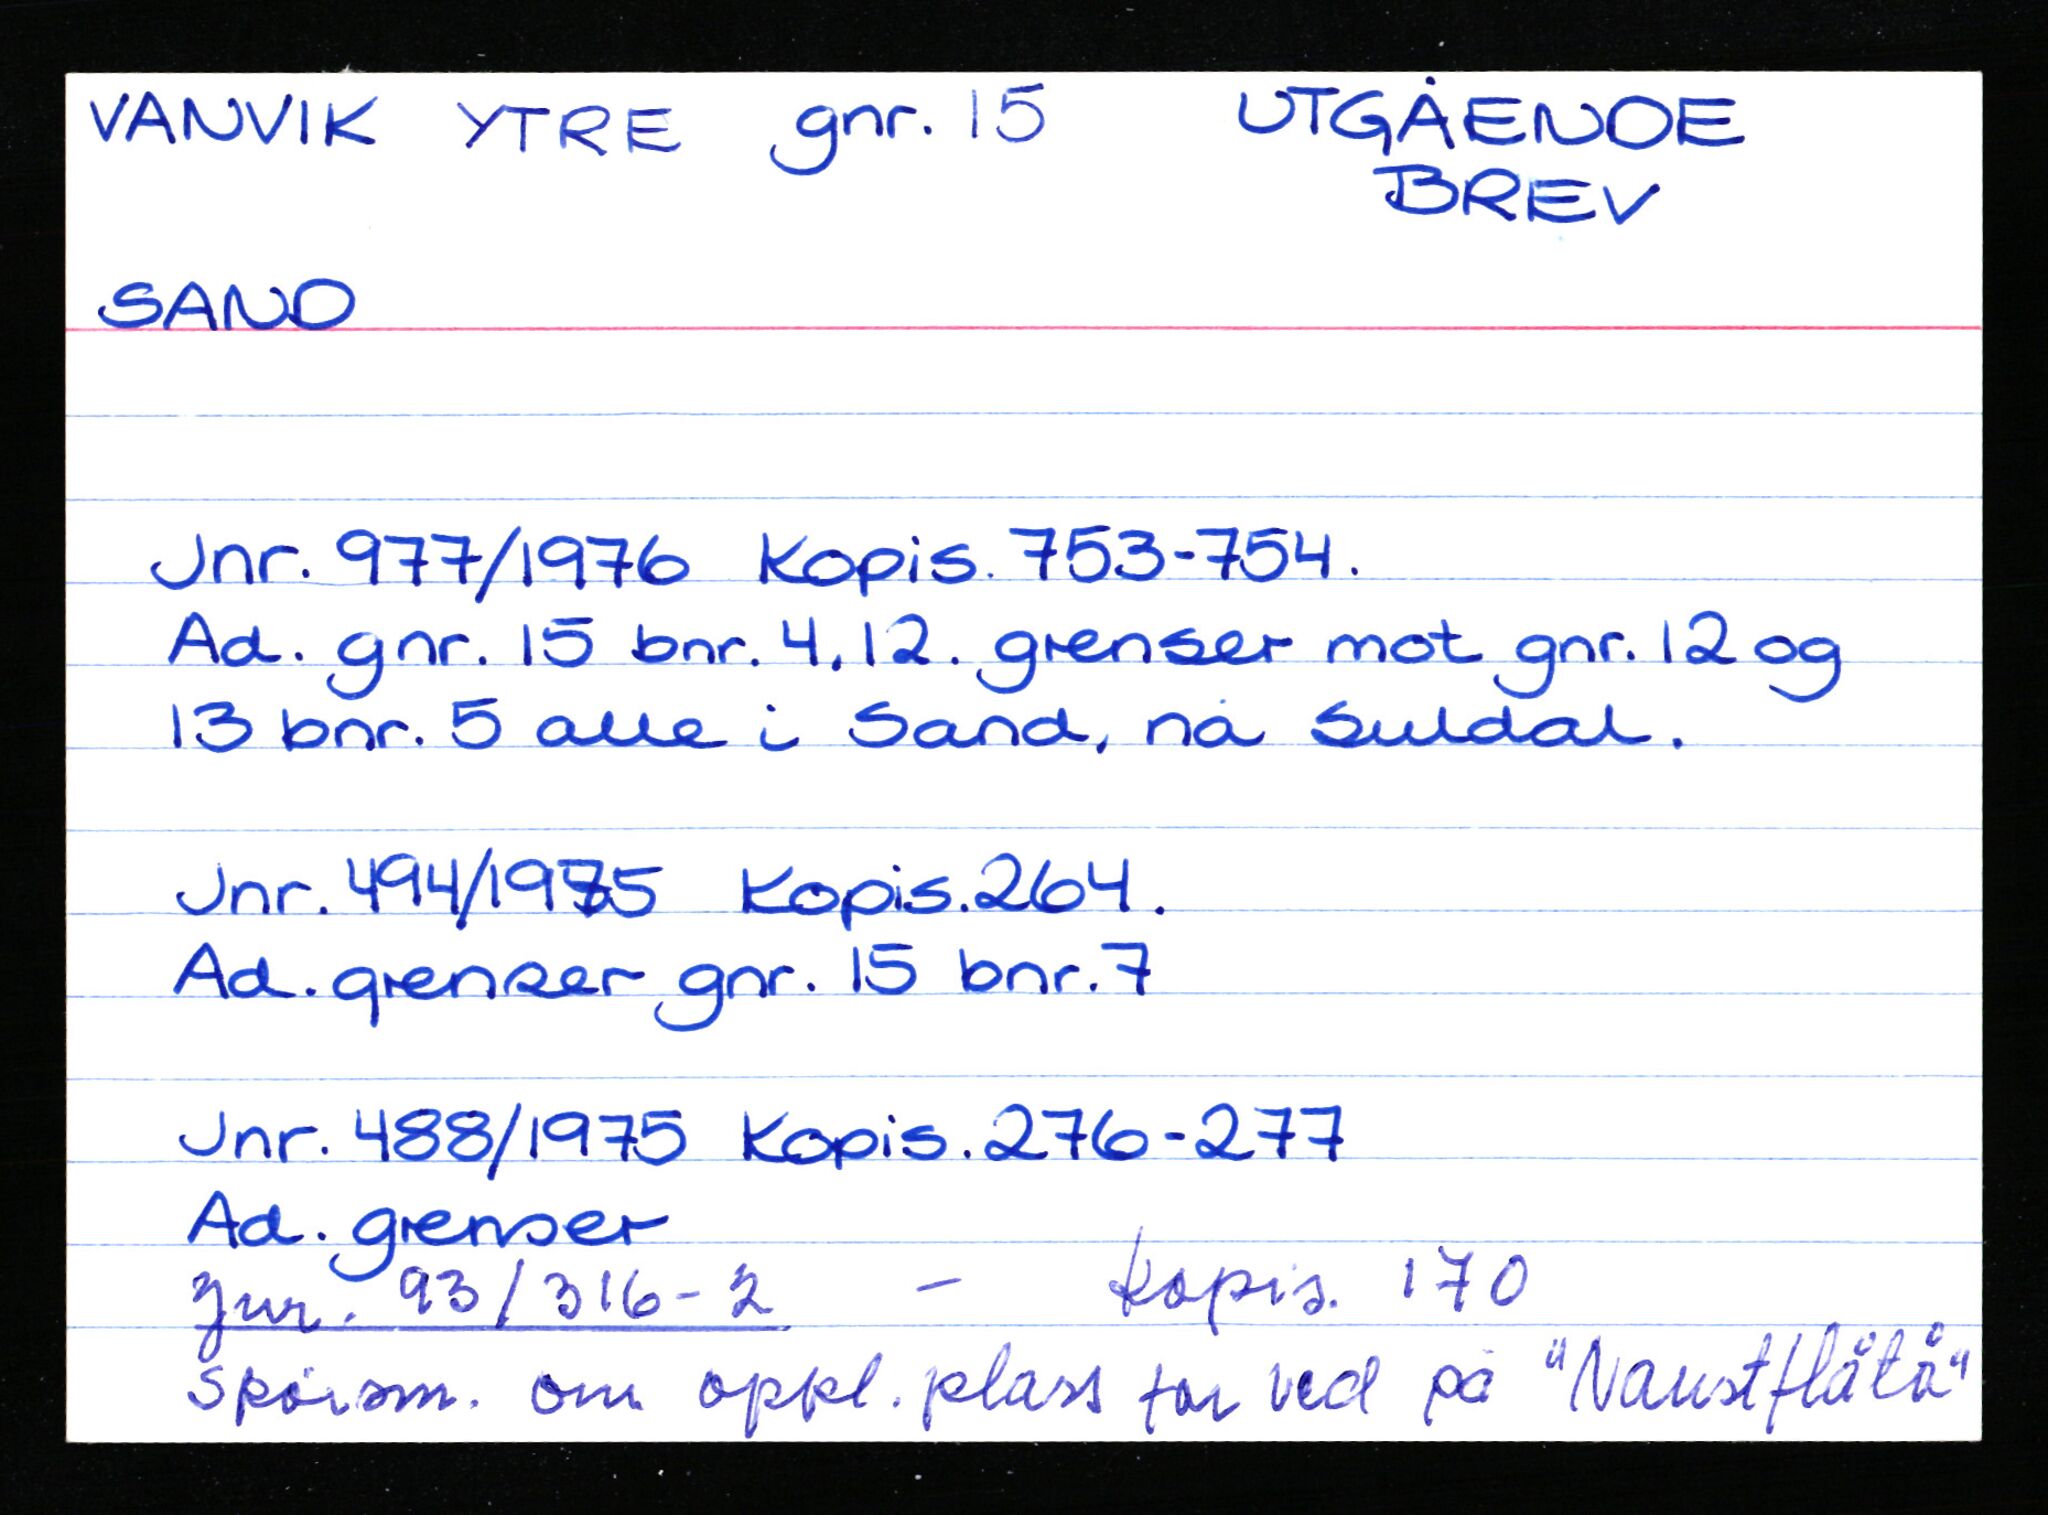 VANVIK YTRE gnr. 15 UTGÅENDE
BREV
SAND
Jnr. 977/1976 Kopis. 753-754.
Ad. gnr. 15 bnr. 4, 12. grenser mot gnr. 12 og
13 bnr. 5 alle i Sand, nå Suldal.
Jnr. 494/1975 Kopis. 264.
Ad. grenser gnr. 15 bnr. 7
Jnr. 488/1975 Kopis. 276-277
Ad. grenser
Jnr. 93/316-2 - Kopis. 170
Spørsm. om oppl.plass for ved på "Naustflåtå"